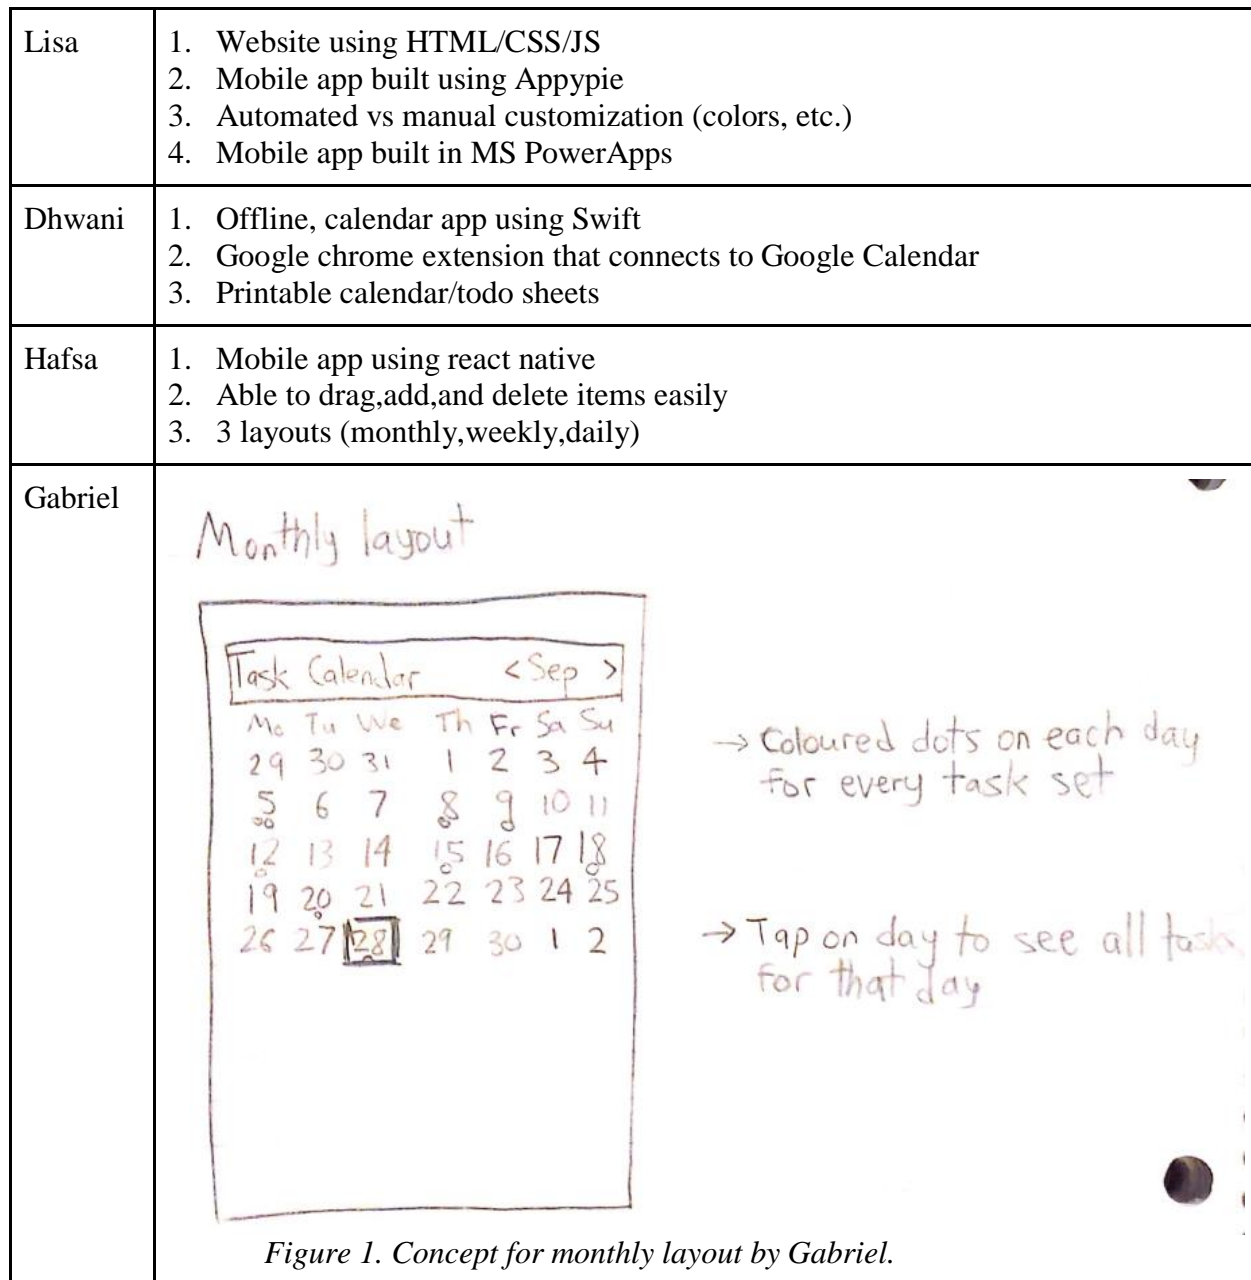 Lisa
1. Website using HTML/CSS/JS
2. Mobile app built using Appypie
3. Automated vs manual customization (colors, etc.)
4. Mobile app built in MS PowerApps
Dhwani
1. Offline, calendar app using Swift
2. Google chrome extension that connects to Google Calendar
3. Printable calendar/todo sheets
Hafsa
1. Mobile app using react native
2. Able to drag,add,and delete items easily
3. 3 layouts (monthly,weekly,daily)
Gabriel
Monthly layout
Task Calendar < Sep >
Mo Tu We Th Fr Sa Su
29 30 31 1 2 3 4
5 6 7 8 9 10 11
12 13 14 15 16 17 18
19 20 21 22 23 24 25
26 27 28 29 30 1 2
→ Coloured dots on each day
for every task set
→ Tap on day to see all tasks
for that day
Figure 1. Concept for monthly layout by Gabriel.